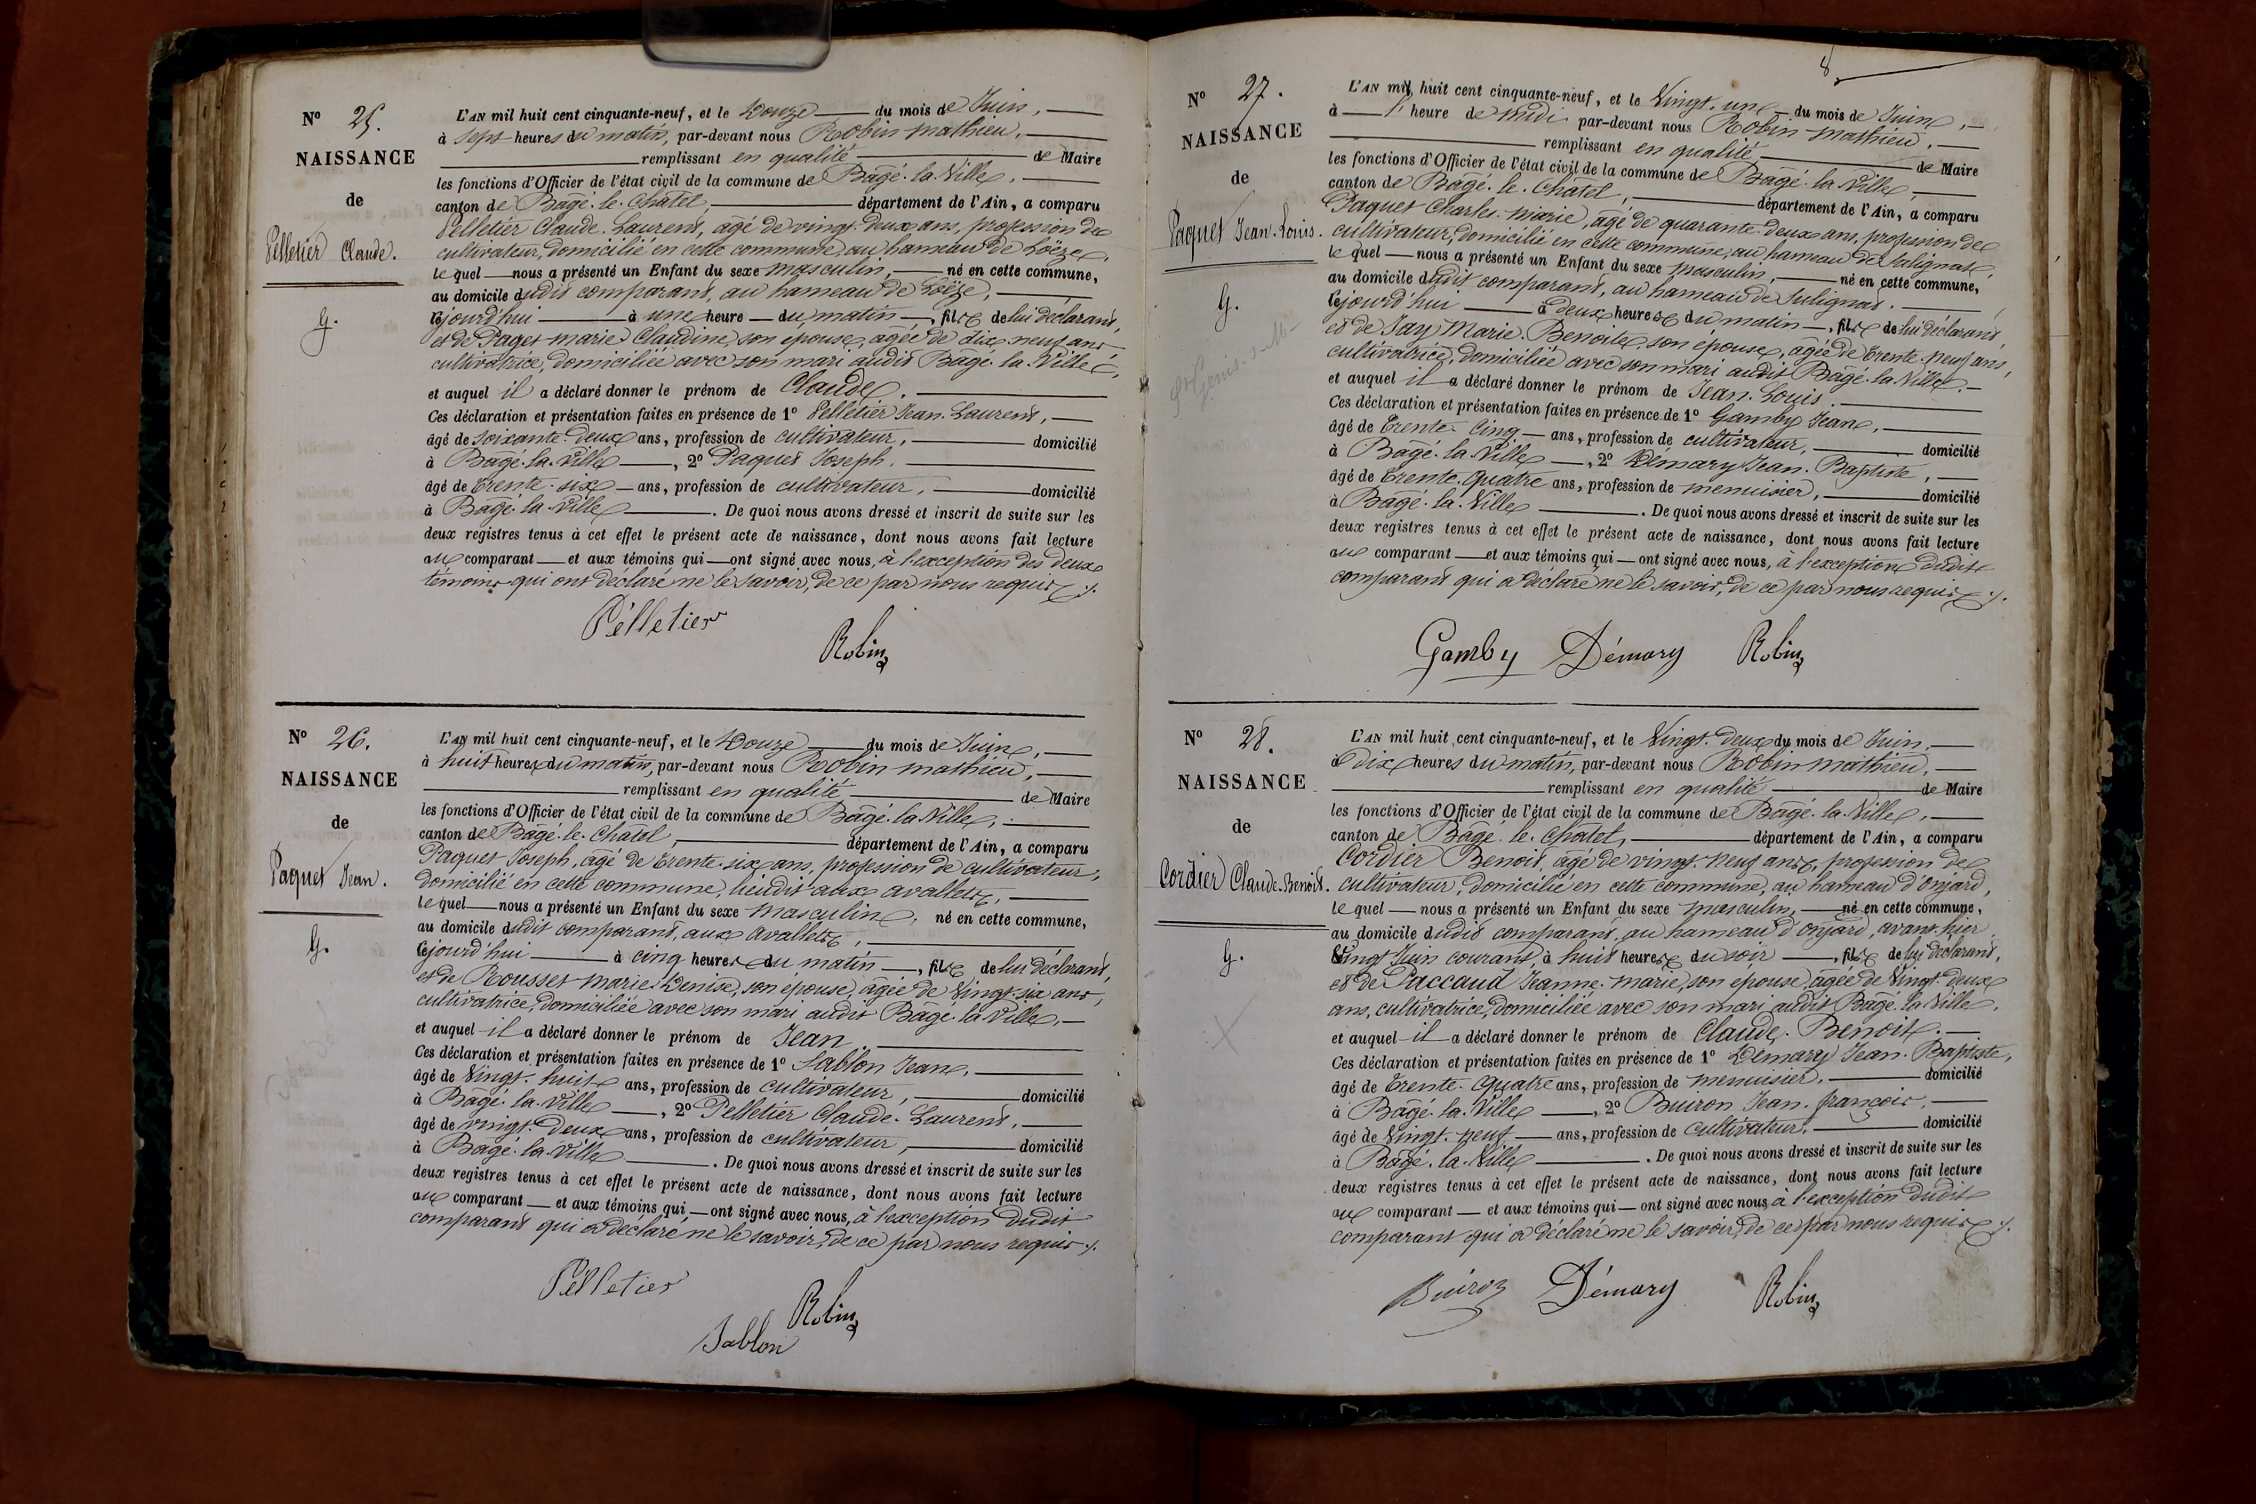 Nº 25.
NAISSANCE
de
Pelletier Claude.
G.
L'AN mil huit cent cinquante-neuf, et le Douze du mois de Juin,
à sept heures du matin, par-devant nous Robin Mathieu,
remplissant en qualité de Maire
les fonctions d'Officier de l'état civil de la commune de Bâgé-la-Ville,
canton de Bâgé-le-Châtel, département de l'Ain, a comparu
Pelletier Claude-Laurent, âgé de vingt-deux ans, profession de
cultivateur, domicilié en cette commune, au hameau de Loëze,
lequel nous a présenté un Enfant du sexe masculin, né en cette commune,
au domicile dudit comparant, au hameau de Loëze,
cejourd'hui à une heure du matin, fils de lui déclarant,
et de Paget Marie Claudine, son épouse, âgée de dix-neuf ans
cultivatrice, domiciliée avec son mari audit Bâgé-la-Ville,
et auquel il a déclaré donner le prénom de Claude.
Ces déclaration et présentation faites en présence de 1º Pelletier Jean-Laurent,
âgé de soixante-deux ans, profession de cultivateur, domicilié
à Bâgé-la-Ville, 2º Paquet Joseph,
âgé de trente-six ans, profession de cultivateur, domicilié
à Bâgé-la-Ville. De quoi nous avons dressé et inscrit de suite sur les
deux registres tenus à cet effet le présent acte de naissance, dont nous avons fait lecture
au comparant et aux témoins qui ont signé avec nous, à l'exception des deux
témoins qui ont déclaré ne le savoir, de ce par nous requis ./.
Pélletier
Robin
Nº 26.
NAISSANCE
de
Paquet Jean.
G.
L'AN mil huit cent cinquante-neuf, et le Douze du mois de Juin,
à huit heures du matin, par-devant nous Robin Mathieu,
remplissant en qualité de Maire
les fonctions d'Officier de l'état civil de la commune de Bâgé-la-Ville,
canton de Bâgé-le-Châtel, département de l'Ain, a comparu
Paquet Joseph, âgé de trente-six ans, profession de cultivateur,
domicilié en cette commune, lieudit aux avallets,
lequel nous a présenté un Enfant du sexe masculin, né en cette commune,
au domicile dudit comparant, aux avallets,
cejourd'hui à cinq heures du matin, fils de lui déclarant,
et de Rousset Marie-Denise, son épouse, âgée de vingt-six ans,
cultivatrice, domiciliée avec son mari audit Bâgé-la-Ville,
et auquel il a déclaré donner le prénom de Jean.
Ces déclaration et présentation faites en présence de 1º Sablon Jean,
âgé de vingt-huit ans, profession de cultivateur, domicilié
à Bâgé-la-Ville, 2º Pelletier Claude-Laurent,
âgé de vingt-deux ans, profession de cultivateur, domicilié
à Bâgé-la-Ville. De quoi nous avons dressé et inscrit de suite sur les
deux registres tenus à cet effet le présent acte de naissance, dont nous avons fait lecture
au comparant et aux témoins qui ont signé avec nous, à l'exception dudit
comparant qui a déclaré ne le savoir, de ce par nous requis ./.
Pélletier
Robin
Sablon
8
Nº 27.
NAISSANCE
de
Paquet Jean-Louis.
G.
St Genis-s-M-
L'AN mil huit cent cinquante-neuf, et le Vingt-un du mois de Juin,
à l'heure de midi par-devant nous Robin Mathieu,
remplissant en qualité de Maire
les fonctions d'Officier de l'état civil de la commune de Bâgé-la-Ville
canton de Bâgé-le-Châtel, département de l'Ain, a comparu
Paquet Charles-Marie, âgé de quarante-deux ans, profession de
cultivateur, domicilié en cette commune, au hameau de Sulignat,
lequel nous a présenté un Enfant du sexe masculin, né en cette commune,
au domicile dudit comparant, au hameau de Sulignat.
cejourd'hui à deux heures du matin, fils de lui déclarant,
et de Jay Marie-Benoite, son épouse, âgée de trente-neuf ans,
cultivatrice, domiciliée avec son mari audit Bâgé-la-Ville,
et auquel il a déclaré donner le prénom de Jean-Louis.
Ces déclaration et présentation faites en présence de 1º Gamby Jean,
âgé de trente-cinq ans, profession de cultivateur, domicilié
à Bâgé-la-Ville, 2º Démary Jean-Baptiste,
âgé de trente-quatre ans, profession de menuisier, domicilié
à Bâgé-la-Ville. De quoi nous avons dressé et inscrit de suite sur les
deux registres tenus à cet effet le présent acte de naissance, dont nous avons fait lecture
au comparant et aux témoins qui ont signé avec nous, à l'exception dudit
comparant qui a déclaré ne le savoir, de ce par nous requis ./.
Gamby Démary Robin
Nº 28.
NAISSANCE
de
Cordier Claude-Benoit.
G.
X
L'AN mil huit cent cinquante-neuf, et le Vingt-deux du mois de Juin,
à dix heures du matin, par-devant nous Robin Mathieu,
remplissant en qualité de Maire
les fonctions d'Officier de l'état civil de la commune de Bâgé-la-Ville,
canton de Bâgé-le-Châtel, département de l'Ain, a comparu
Cordier Benoit, âgé de vingt-neuf ans, profession de
cultivateur, domicilié en cette commune, au hameau d'Onjard,
lequel nous a présenté un Enfant du sexe masculin, né en cette commune,
au domicile dudit comparant, au hameau d'Onjard, avant-hier
vingt Juin courant, à huit heures du soir, fils de lui déclarant,
et de Paccaud Jeanne-Marie, son épouse, âgée de vingt-deux
ans, cultivatrice, domiciliée avec son mari audit Bâgé-la-Ville,
et auquel il a déclaré donner le prénom de Claude-Benoit.
Ces déclaration et présentation faites en présence de 1º Démary Jean-Baptiste,
âgé de trente-quatre ans, profession de menuisier, domicilié
à Bâgé-la-Ville, 2º Buiron Jean-François,
âgé de vingt-neuf ans, profession de cultivateur, domicilié
à Bâgé-la-Ville. De quoi nous avons dressé et inscrit de suite sur les
deux registres tenus à cet effet le présent acte de naissance, dont nous avons fait lecture
au comparant et aux témoins qui ont signé avec nous, à l'exception dudit
comparant qui a déclaré ne le savoir, de ce par nous requis ./.
Buiron Démary Robin